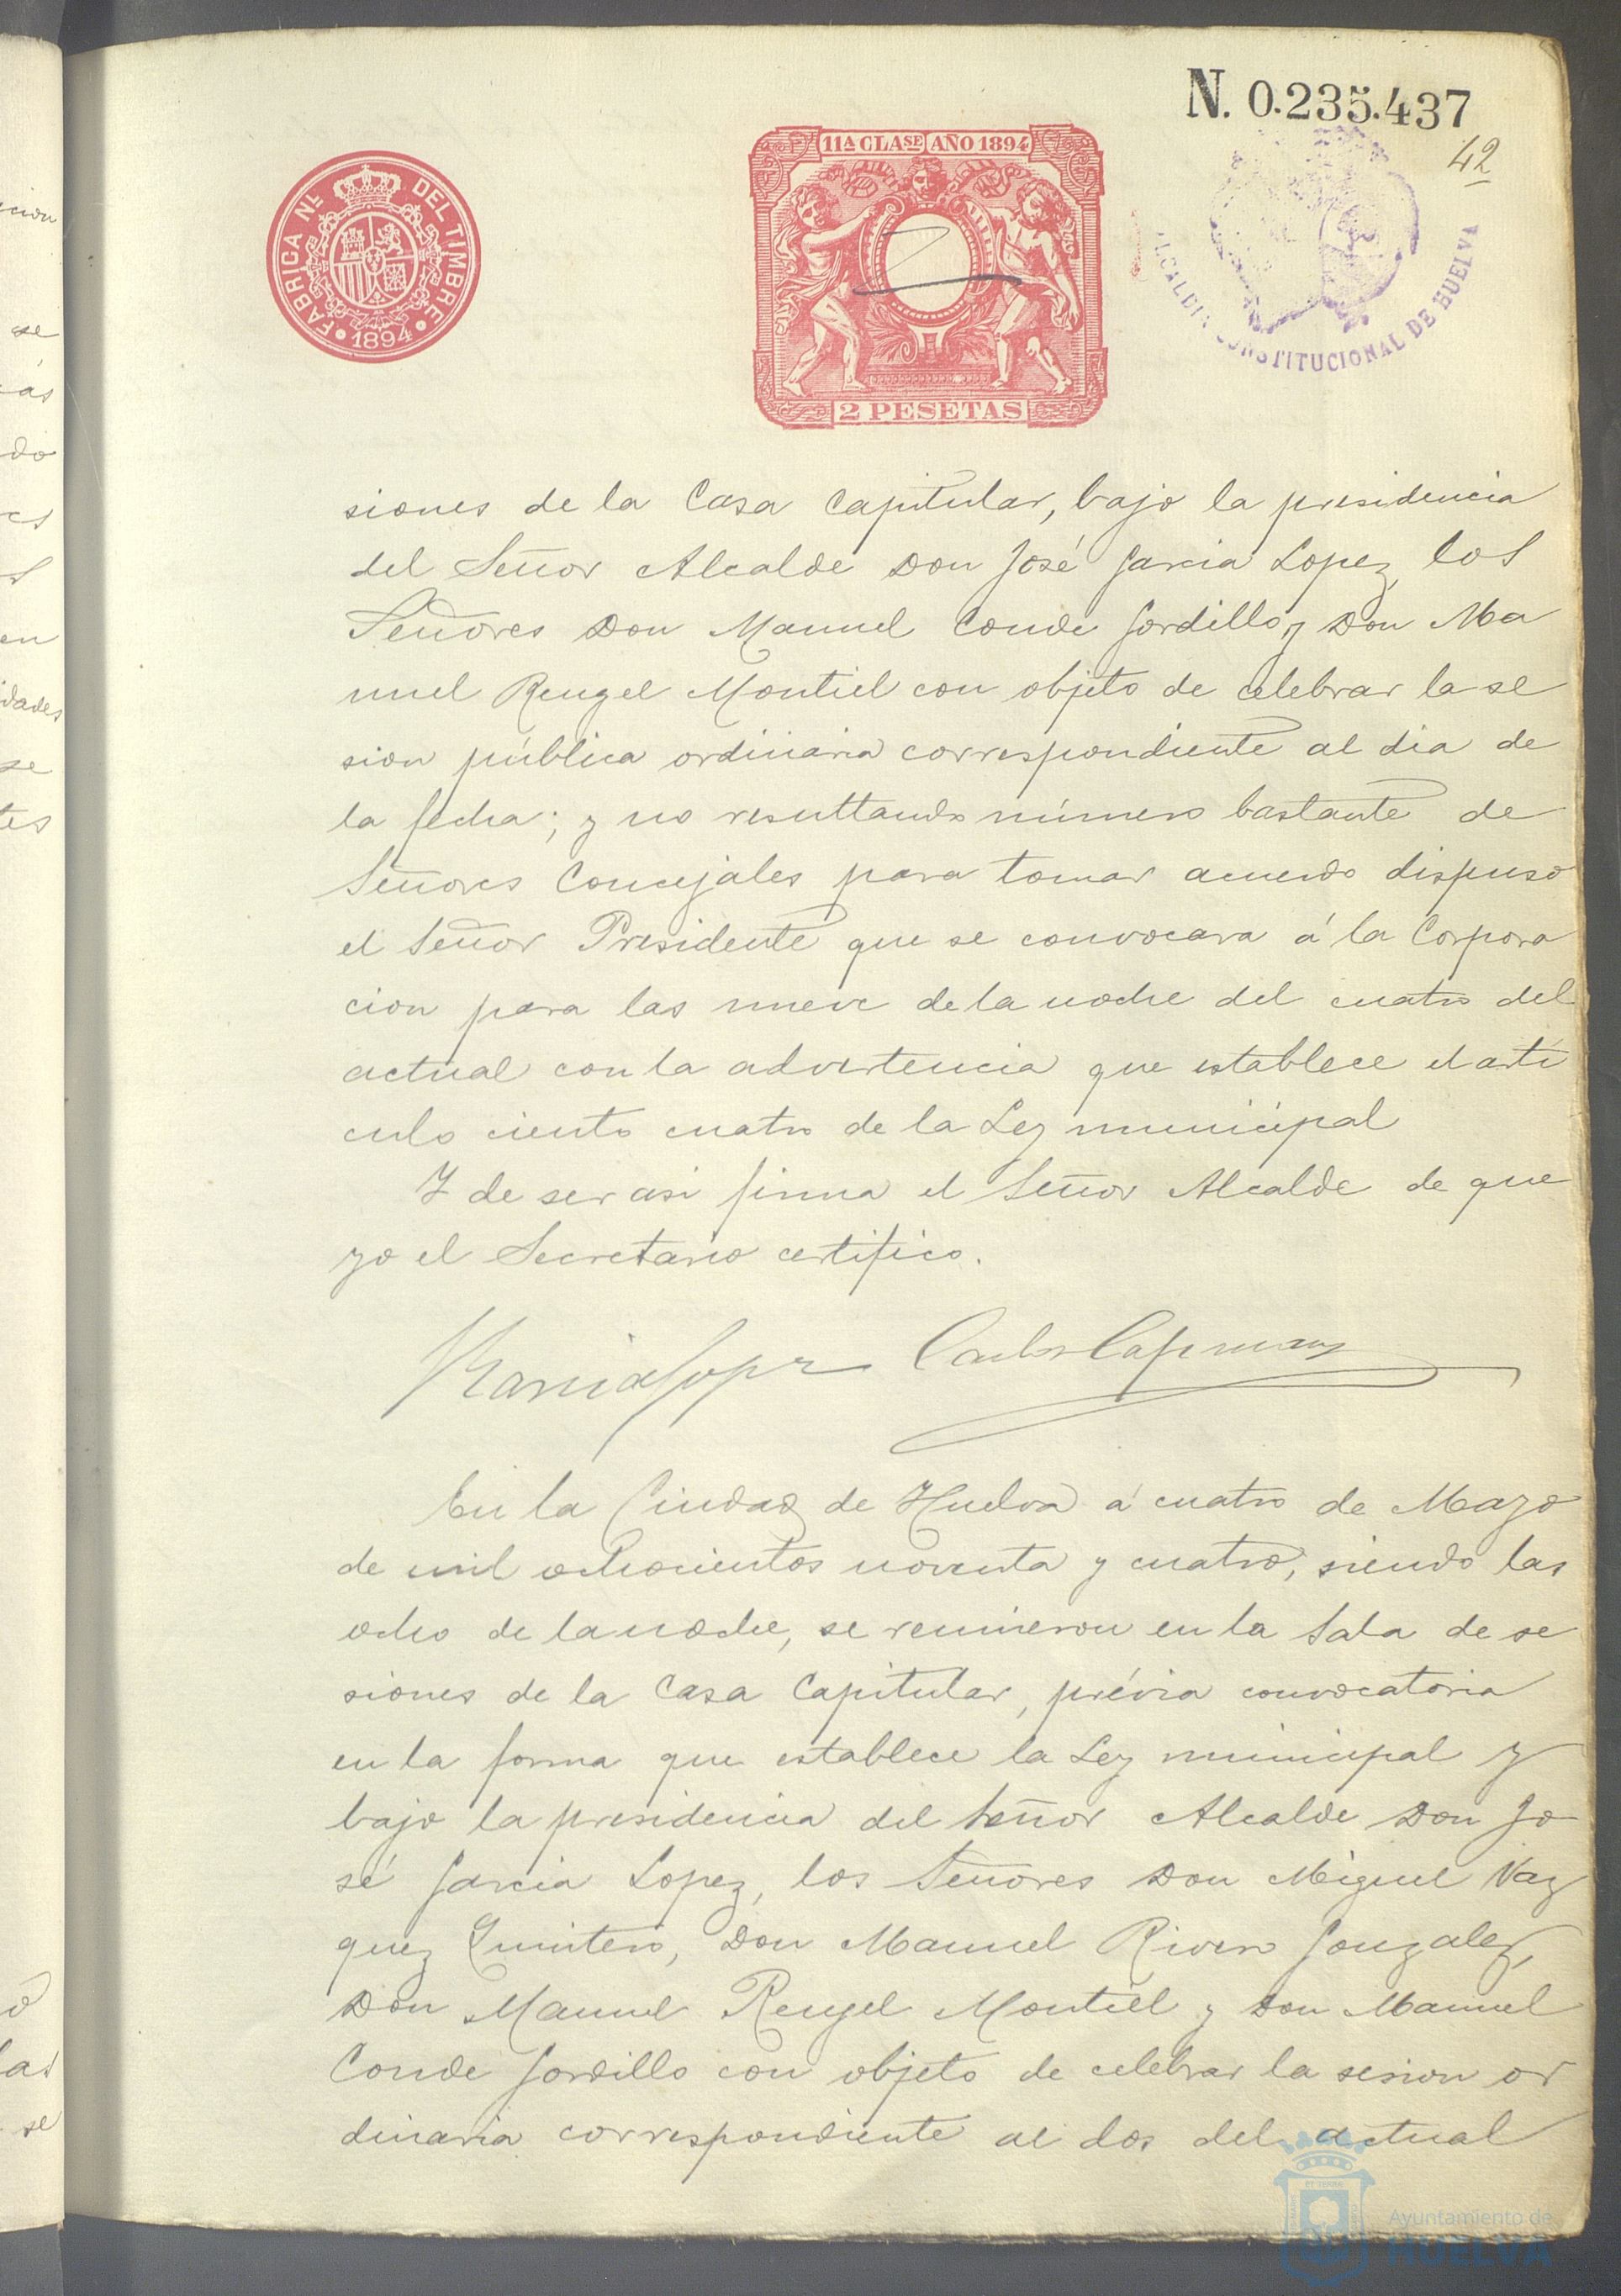 N. 0.235.437
42
11ª CLASE AÑO 1894
FABRICA NL. DEL TIMBRE
1894
2 PESETAS
ALCALDIA CONSTITUCIONAL DE HUELVA
siones de la Casa Capitular, bajo la presidencia
del Señor Alcalde Don José Garcia Lopez, los
Señores Don Manuel Conde Gordillo, y Don Ma
nuel Rengel Montiel con objeto de celebrar la se
sion pública ordinaria correspondiente al dia de
la fecha; y no resultando número bastante de
Señores Concejales para tomar acuerdo dispuso
el Señor Presidente que se convocara á la Corpora
cion para las nueve de la noche del cuatro del
actual con la advertencia que establece el arti
culo ciento cuatro de la Ley municipal
Y de ser asi firma el Señor Alcalde de que
yo el Secretario certifico.
Garcia Lopez
En la Ciudad de Huelva á cuatro de Mayo
de mil ochocientos noventa y cuatro, siendo las
ocho de la noche, se reunieron en la Sala de se
siones de la Casa Capitular, prévia convocatoria
en la forma que establece la Ley municipal y
bajo la presidencia del Señor Alcalde Don Jo
sé Garcia Lopez, los Señores Don Miguel Vaz
quez Quintero, Don Manuel Rivero Gonzalez,
Don Manuel Rengel Montiel y Don Manuel
Conde Gordillo con objeto de celebrar la sesion or
dinaria correspondiente al dos del actual
Ayuntamiento de
HUELVA